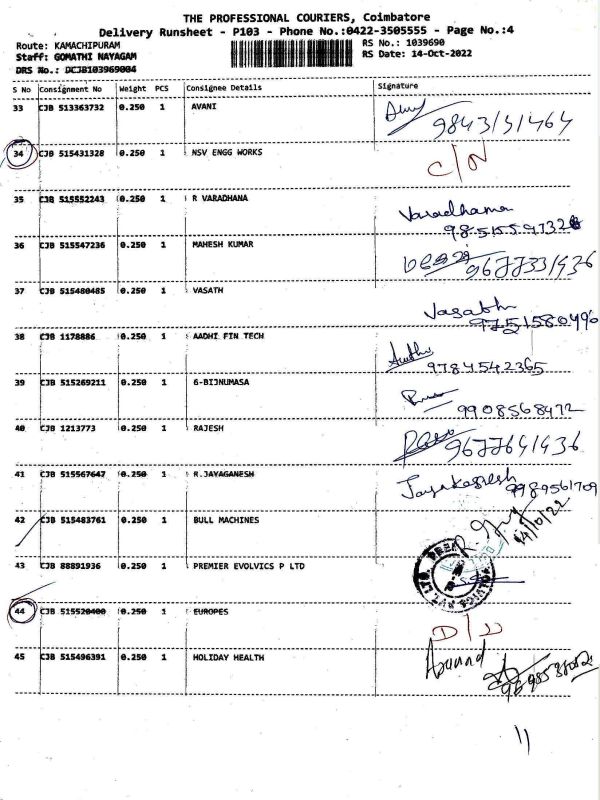 THE PROFESSIONAL COURIERS, Coimbatore
Delivery Runsheet - P103 - Phone No.:0422-3505555 - Page No.:4
Route: KAMACHIPURAM RS No.: 1039690
Staff: GOMATHI NAYAGAM RS Date: 14-Oct-2022
DRS No.: DCJB103969004
S No Consignment No Weight PCS Consignee Details Signature
33 CJB 513363732 0.250 1 AVANI
9843151464
34 CJB 515431328 0.250 1 NSV ENGG WORKS C/N
35 CJB 515552243 0.250 1 R VARADHANA Varadhama
36 CJB 515547236 0.250 1 MAHESH KUMAR
9677331436
37 CJB 515480485 0.250 1 VASATH Vasath
9751580490
38 CJB 1178886 0.250 1 AADHI FIN TECH
9784542365
39 CJB 515269211 0.250 1 6-BIJNUMASA
9908568472
40 CJB 1213773 0.250 1 RAJESH
9677641436
41 CJB 515567647 0.250 1 R.JAYAGANESH
9989561709
42 CJB 515483761 0.250 1 BULL MACHINES
14/10/22
43 CJB 88891936 0.250 1 PREMIER EVOLVICS P LTD
44 CJB 515520400 0.250 1 EUROPES
45 CJB 515496391 0.250 1 HOLIDAY HEALTH Anand
11